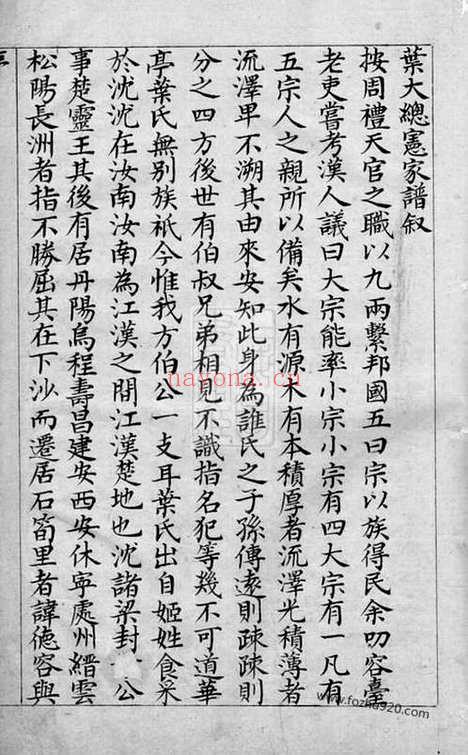 葉大總憲家譜叙
按周禮天官之職以九兩繫邦國五曰宗以族得民余叨容臺
老吏嘗考漢人議曰大宗能率小宗小宗有四大宗有一凡有
五宗人之親所以備矣水有源木有本積厚者流澤光積薄者
流澤卑不溯其由來安知此身為誰氏之子孫傳遠則疎疎則
分之四方後世有伯叔兄弟相見不識指名犯等幾不可道華
亭葉氏無别族祇今惟我方伯公一支耳葉氏出自姬姓食采
於沈沈在汝南汝南為江漢之間江漢楚地也沈諸梁封 公
事楚靈王其後有居丹陽烏程壽昌建安西安休寧處州縉雲
松陽長洲者指不勝屈其在下沙而遷居石筍里者諱德容與
nayona.cn
www.fozhu920.com